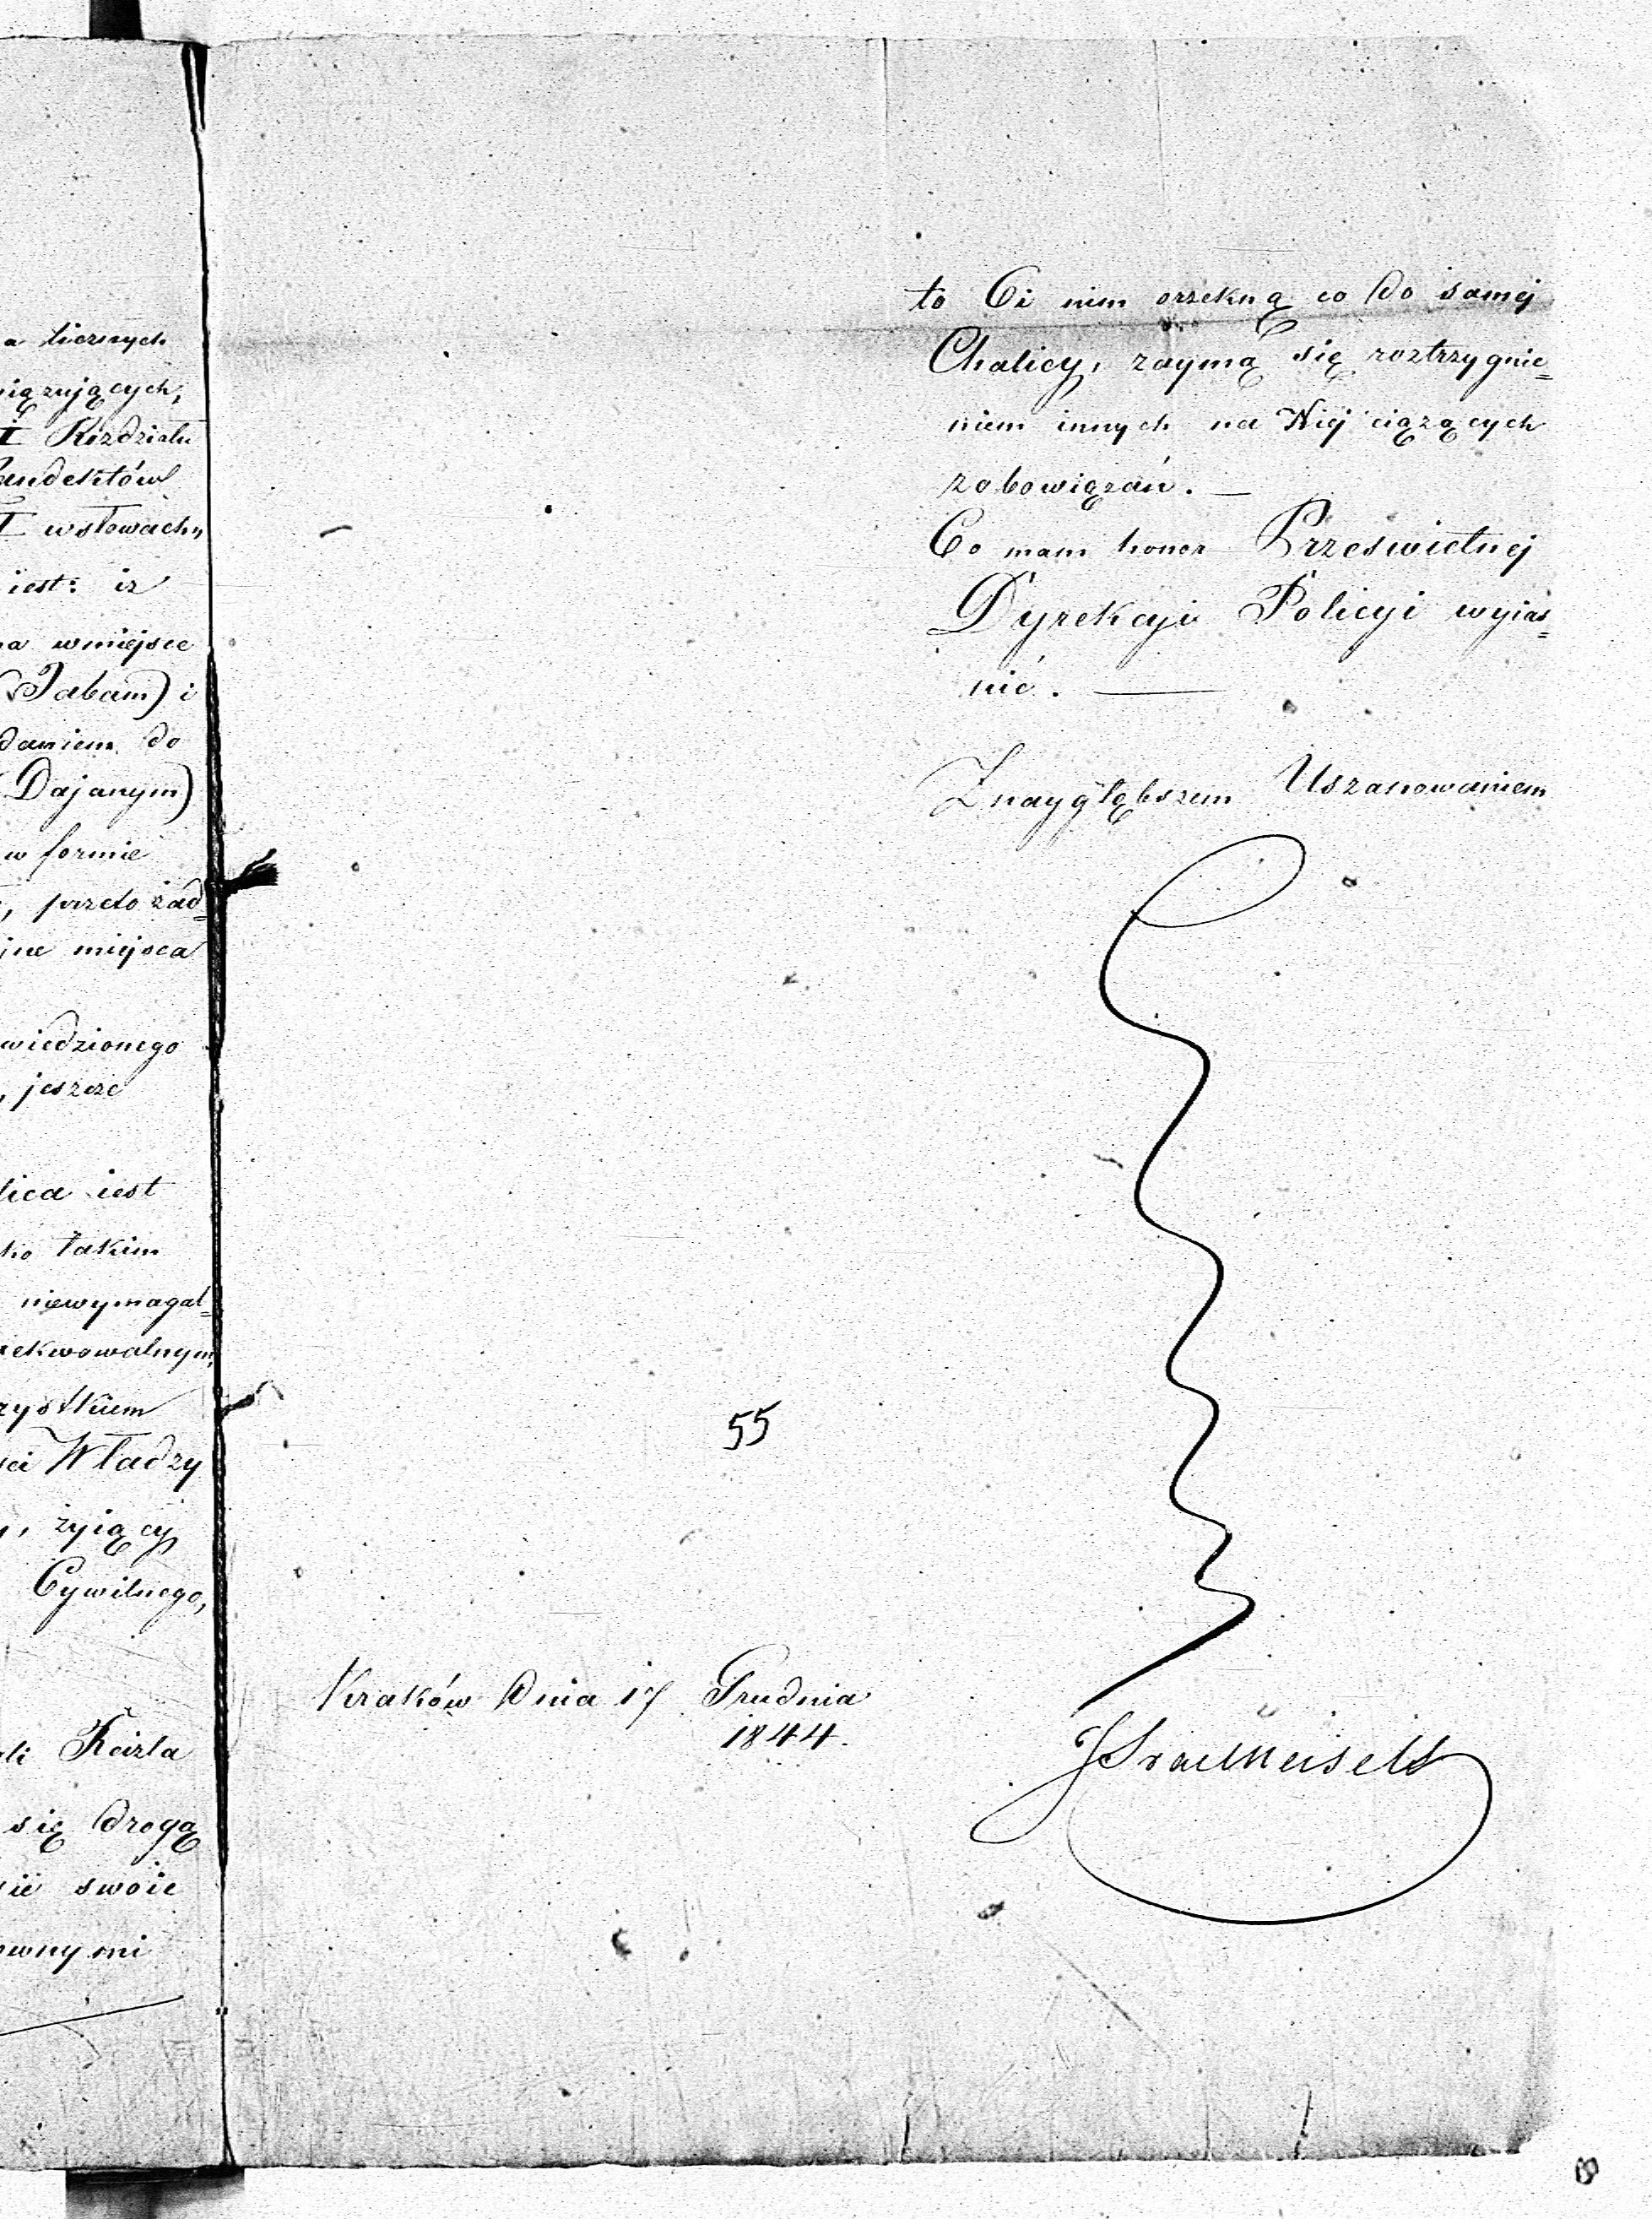 a licznych
iązujących,
I Rozdziału
Pandektów
I w słowach „
iest: iż
na wmiejsce
(Jabam) i
daniem do
(Dajanym)
w formie
, przeto żad=
jne miejsca
wiedzionego
, jeszcze
lica iest
ko takim
niewymagal=
ekwowalnym,
zystkiem
ści Władzy
, żyiący
Cywilnego,
li Feizla
się drogą
swoie
ownymi
to Ci nim orzekną co do samej
Chalicy, zaymą się roztrzygnie=
niem innych na Niej ciążących
zobowiązań. —
Co mam honor Prześwietnej
Dyrekcyi Policyi wyias=
nić. —
Z naygłębszem Uszanowaniem
55
Kraków Dnia 17 Grudnia
1844.
Israel Meisels